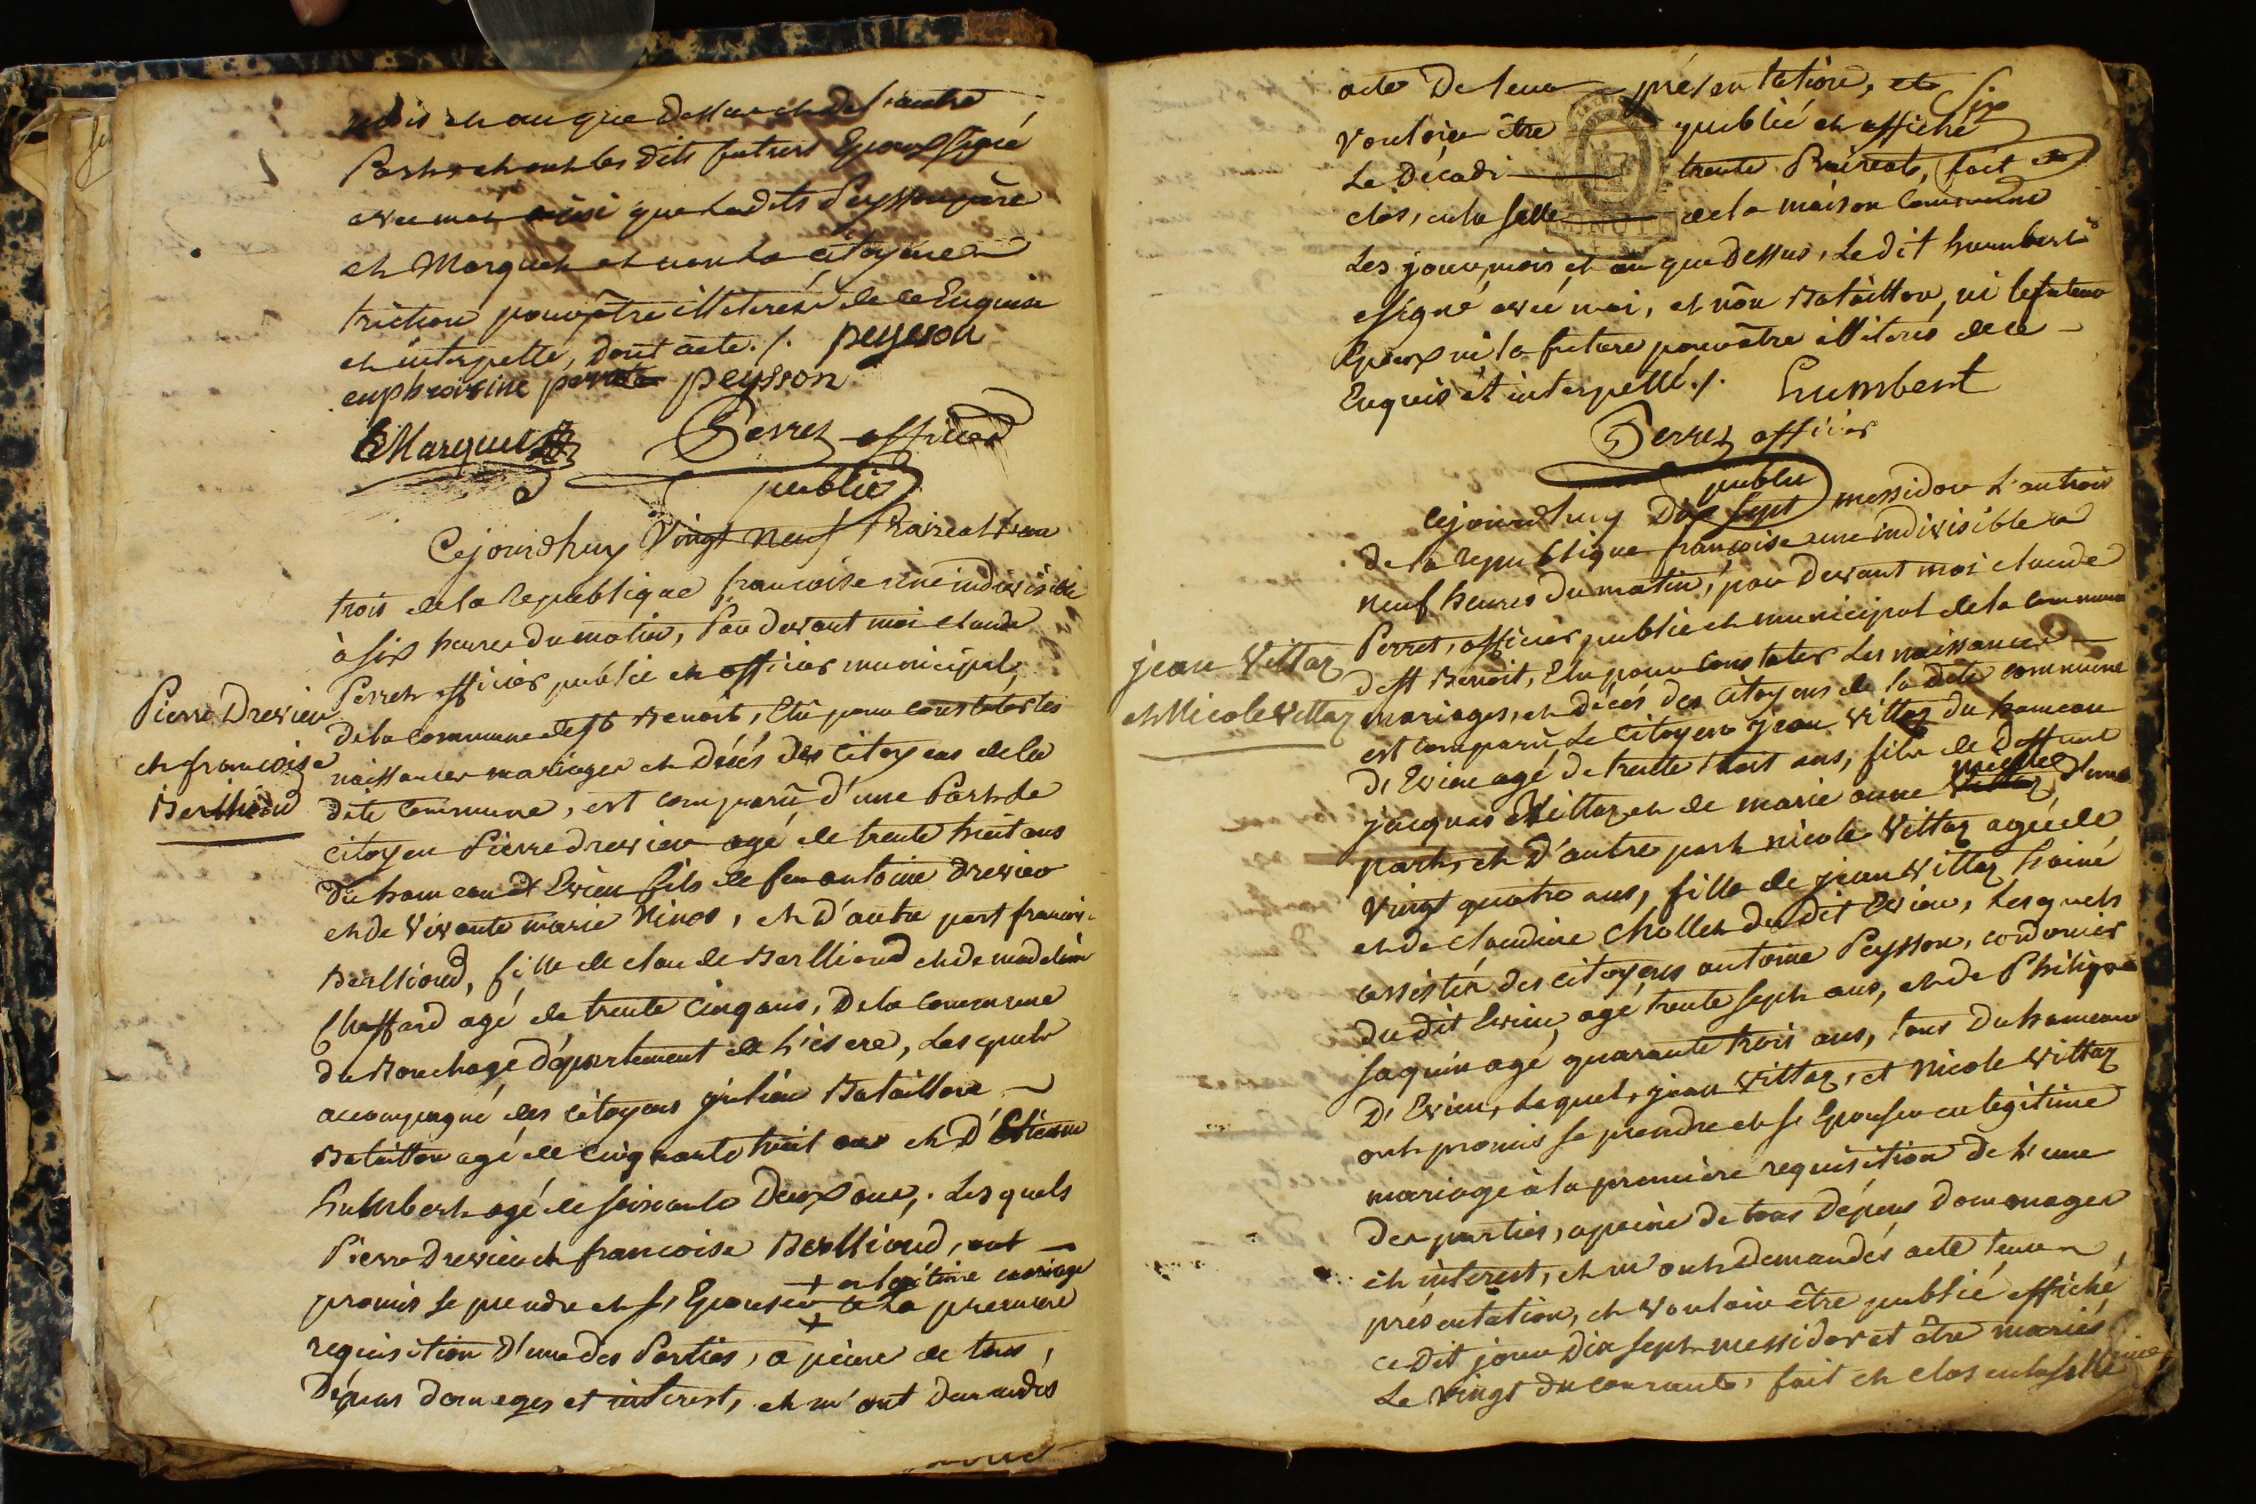 mois et an que dessus et de l'autre
Part et ont les dits futurs Epoux signé
avec moi ainsi que ledits Peysson père
et Marquet et non la citoyene
triction pour être illiteré de ce Enquise
et interpellé, dont acte ./. peysson
euphroisine perret peysson
Marquet Perret officier
public
Cejourdhuy Vingt neuf Prairéal l'an
trois de la Republique francoise une indivisible
à six heures du matin, Par devant moi claude
Perret officier public et officier municipal
Pierre Drevieu
et francoise
Berlhioud
de la commune de st Benoit, Elu pour constater les
naissances mariages et décés des Citoyens de la
dite commune, est comparû d'une Part le
citoyen Pierre drevieu agé de trente huit ans
du hameau d'Evieu fils de feu antoine drevieu
et de vivante marie Ninos, et d'autre part francoise
Berlhioud, fille de claude Berlhioud et de madeleine
Chaffard agé de trente Cinq ans, De la commune
du Bouchage département de l'isere, Les quels
accompagné des citoyens Bataillon
Bataillon agé de Cinquante huit ans et D'Etienne
humbert agé de soixante Deux ans, Les quels
Pierre Drevieu et francoise Berlhioud, ont
promis se prendre et s'Epouser à La premiere
+ en legitime mariage
requisition d'une des Parties, a peine de tous
Dépens domages et interest, et m'ont demandés
acte De leur présentation, et
Six
vouloir être publié et affiché
Le Décadi trente Prairéal, fait et
clos, en la salle de la maison commune
MINUTE
Les jour, mois et an que dessus, Le dit humbert
a signé avec moi, et non Bataillon, ni le futeur
Epoux ni la future pour être illiteré de ce
Enquis et interpellé ./. humbert
Perret officier
public
Cejourdhuy Dix sept messidor L'an trois
de la republique francoise une indivisible a
neuf heures du matin, par devant moi claude
Perret, officier public et municipal de la commune
jean Vittoz
et Nicole Vittoz
de st Benoit, Elu pour constater Les naissances
mariages, et décés des Citoyens de la dite commune
est comparû Le Citoyen jean Vittoz du hameau
d'Evieu agé de trente huit ans, fils de deffunt
jacques Vittoz et de marie anne d'une
part, et D'autre part nicole Vittoz agée de
vingt quatre ans, fille de jean Vittoz L'ainé
et de claudine Chollet du dit Evieu, Lesquels
assistén des citoyens antoine Peysson, cordonier
du dit Evieu, agé trente sept ans, et de Philipe
saquin agé quarante trois ans, tous du hameau
D'Evieu, Lequel, jean Vittoz, et Nicole Vittoz
ont promis se prendre et s'Epouser en legitime
mariage à la première requisition de l'une
des parties, a peine de tous Dépens domonages
et interest, et m'ont demandés acte leur
présentation, et vouloir être publié affiché
ce dit jour Dix sept messidor et être mariés
Le vingt du courante, fait et clos en la salle